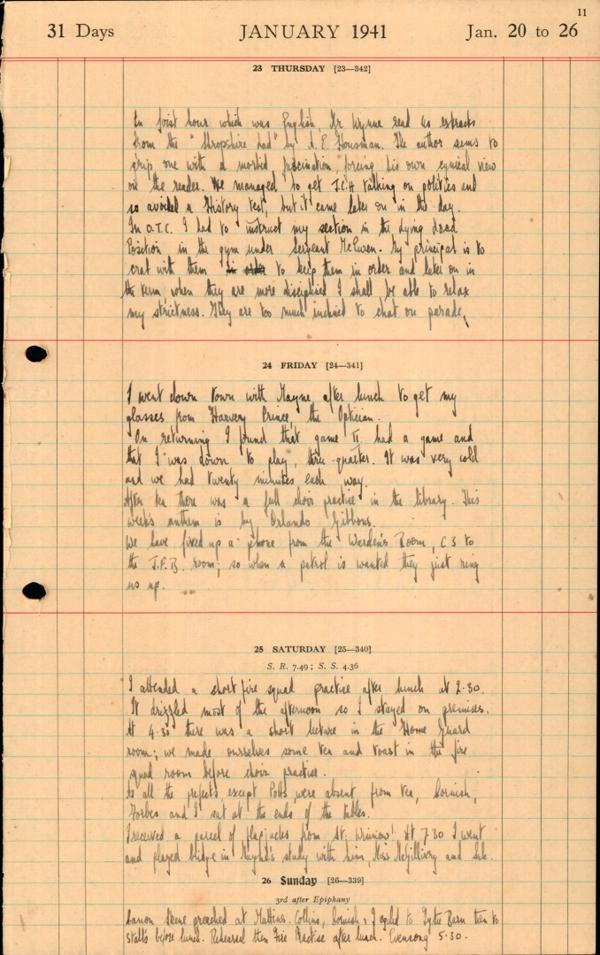 11
31 Days JANUARY 1941 Jan. 20 to 26
23 THURSDAY [23—342]
In first hour which was English, Mr Wynne read us extracts
from the "Shropshire Lad" by A. E. Housman. The author seems to
grip one with a morbid fascination, forcing his own cynical view
on the reader. We managed to get J.C.H talking on politics and
so avoided a History test, but it came later on in the day.
In O.T.C. I had to instruct my section in the lying load
Position in the gym under Sergeant McEwen. My principal is to
with them to keep them in order and later on in
the term when they are more disciplined I shall be able to relax
my strictness. They are too much inclined to chat on parade,
24 FRIDAY [24—341]
I went down town with Mayne after lunch to get my
glasses from Harvery Prince, the Optician.
On returning I found that game II had a game and
that I was down to play, three-quarter. It was very cold
and we had twenty minutes each way.
After tea there was a full choir practice in the library. This
week's anthem is by Orlando Gibbons.
We have fixed up a phone from the Warden's Room, C3 to
the J.F.B. room; so when a patrol is wanted they just ring
us up.
25 SATURDAY [25—340]
S. R. 7.49 ; S. S. 4.36
I attended a short fire squad practice after lunch at 2.30.
It drizzled most of the afternoon so I stayed on premises.
At 4.30 there was a short lecture in the Home Guard
room; we made ourselves some tea and toast in the fire
squad room before choir practice.
As all the prefects, except Potts, were absent from tea, Cornish,
Forbes and I sat at the ends of the tables.
I received a parcel of flapjacks from St. At 7.30 I went
and played bridge in study with him, Miss and
26 Sunday [26—339]
3rd after Epiphany
Canon preached at Mattins. Collins, Cornish & I cycled to Barn then to
stalls before lunch. Rehearsal then Fire Practise after lunch. Evensong 5.30.